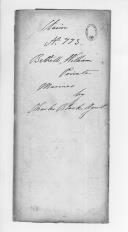 Claim
No. 773.
Bethell, William
Private
Marines
by
Charles